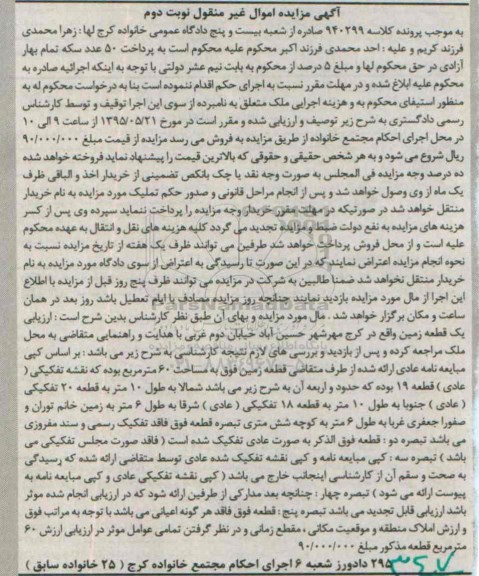 آگهی مزایده اموال غیر منقول نوبت دوم
به موجب پرونده کلاسه ۹۴۰۲۹۹ صادره از شعبه بیست و پنج دادگاه عمومی خانواده کرج لها : زهرا محمدی
فرزند کریم و علیه : احد محمدی فرزند اکبر محکوم علیه محکوم است به پرداخت ۵۰ عدد سکه تمام بهار
آزادی در حق محکوم لها و مبلغ ۵ درصد از محکوم به بابت نیم عشر دولتی با توجه به اینکه اجرائیه صادره به
محکوم علیه ابلاغ شده و در مهلت مقرر نسبت به اجرای حکم اقدام ننموده است بنا به درخواست محکوم له به
منظور استیفای محکوم به و هزینه اجرایی ملک متعلق به نامبرده از سوی این اجرا توقیف و توسط کارشناس
رسمی دادگستری به شرح زیر توصیف و ارزیابی شده و مقرر است در مورخ ۱۳۹۵/۰۵/۲۱ از ساعت ۹ الی ۱۰
در محل اجرای احکام مجتمع خانواده از طریق مزایده به فروش می رسد مزایده از قیمت مبلغ ۹۰/۰۰۰/۰۰۰
ریال شروع می شود و به هر شخص حقیقی و حقوقی که بالاترین قیمت را پیشنهاد نماید فروخته خواهد شده
ده درصد وجه مزایده فی المجلس به صورت وجه نقد یا چک بانکی تضمینی از خریدار اخذ و الباقی ظرف
یک ماه از وی وصول خواهد شد و پس از انجام مراحل قانونی و صدور حکم تملیک مورد مزایده به نام خریدار
منتقل خواهد شد در صورتیکه در مهلت مقرر خریدار وجه مزایده را پرداخت ننماید سپرده وی پس از کسر
هزینه های مزایده به نفع دولت ضبط و مزایده تجدید می گردد کلیه هزینه های نقل و انتقال به عهده محکوم
علیه است و از محل فروش پرداخت خواهد شد طرفین می توانند ظرف یک هفته از تاریخ مزایده نسبت به
نحوه انجام مزایده اعتراض نمایند که در این صورت تا رسیدگی به اعتراض از سوی دادگاه مورد مزایده به نام
خریدار منتقل نخواهد شد ضمنا طالبین به شرکت در مزایده می توانند ظرف پنج روز قبل از مزایده با اطلاع
این اجرا از مال مورد مزایده بازدید نمایند چنانچه روز مزایده مصادف با ایام تعطیل باشد روز بعد در همان
ساعت و مکان برگزار خواهد شد . مال مورد مزایده و بهای آن طبق نظر کارشناس بدین شرح است : ارزیابی
یک قطعه زمین واقع در کرج مهرشهر حسین آباد خیابان دوم غربی با هدایت و راهنمایی متقاضی به محل
ملک مراجعه کرده و پس از بازدید و بررسی های لازم نتیجه کارشناسی به شرح زیر می باشد : بر اساس کپی
مبایعه نامه عادی ارائه شده از طرف متقاضی قطعه زمین فوق به مساحت ۶۰ مترمربع بوده که نقشه تفکیکی (
عادی ) قطعه ۱۹ بوده که حدود و اربعه آن به شرح زیر می باشد شمالا به طول ۱۰ متر به قطعه ۲۰ تفکیکی
( عادی ) جنوبا به طول ۱۰ متر به قطعه ۱۸ تفکیکی ( عادی ) شرقا به طول ۶ متر به زمین خانم توران و
صفورا جعفری غربا به طول ۶ متر به کوچه شش متری تبصره قطعه فوق فاقد تفکیک رسمی و سند مفروزی
می باشد تبصره دو : قطعه فوق الذکر به صورت عادی تفکیک شده است ( فاقد صورت مجلس تفکیکی می
باشد ) تبصره سه : کپی مبایعه نامه و کپی نقشه تفکیک شده عادی توسط متقاضی ارائه شده که رسیدگی
به صحت و سقم آن از کارشناسی اینجانب خارج می باشد ( کپی نقشه تفکیکی عادی و کپی مبایعه نامه به
پیوست ارائه می شود ) تبصره چهار : چنانچه بعد مدارکی از طرفین ارائه شود که در ارزیابی انجام شده موثر
باشد ارزیابی قابل تجدید می باشد تبصره پنج : قطعه فوق فاقد هر گونه اعیانی می باشد با توجه به مراتب فوق
و ارزش املاک منطقه و موقعیت مکانی ، مقطع زمانی و در نظر گرفتن تمامی عوامل موثر در ارزیابی ارزش ۶۰
مترمربع قطعه مذکور مبلغ ۹۰/۰۰۰/۰۰۰
۲۹۵ دادورز شعبه ۶ اجرای احکام مجتمع خانواده کرج ( ۲۵ خانواده سابق )